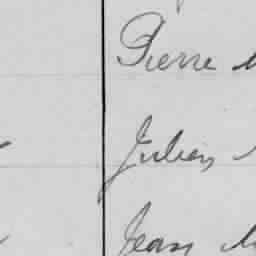 Pierre
Julien
Jean